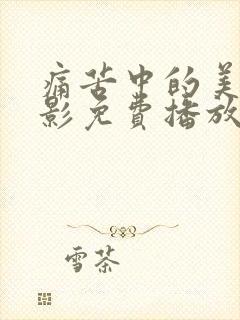 痛苦中的美
影免费播放
雪茶